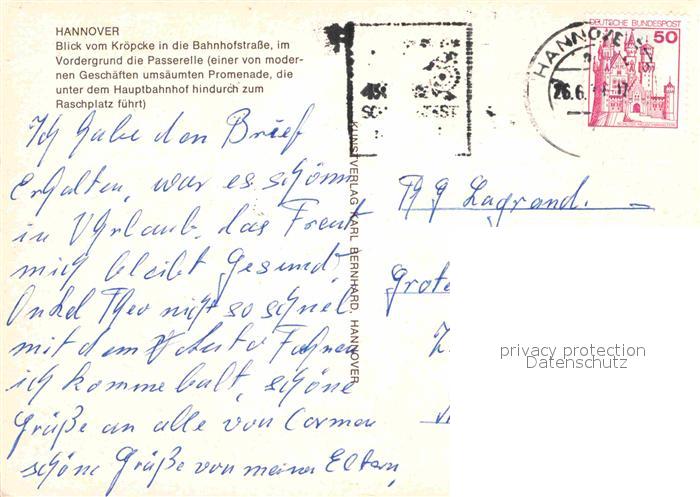 HANNOVER
Blick vom Kröpcke in die Bahnhofstraße, im
Vordergrund die Passerelle (einer von moder-
nen Geschäften umsäumten Promenade, die
unter dem Hauptbahnhof hindurch zum
Raschplatz führt)
Ich habe den Brief
Erhalten, war es schönn
in Uhrlaub, das Freut
mich bleibt Gesund,
Onkel Theo nicht so schnel
mit dem Auto Fahren
ich komme balt, schöne
Grüße an alle von Carmen
schöne Grüße von meinen Eltern,
KUNSTVERLAG KARL BERNHARD, HANNOVER
HANNOVER
26.6.
DEUTSCHE BUNDESPOST
50
Lagrand.
Grote
privacy protection
Datenschutz